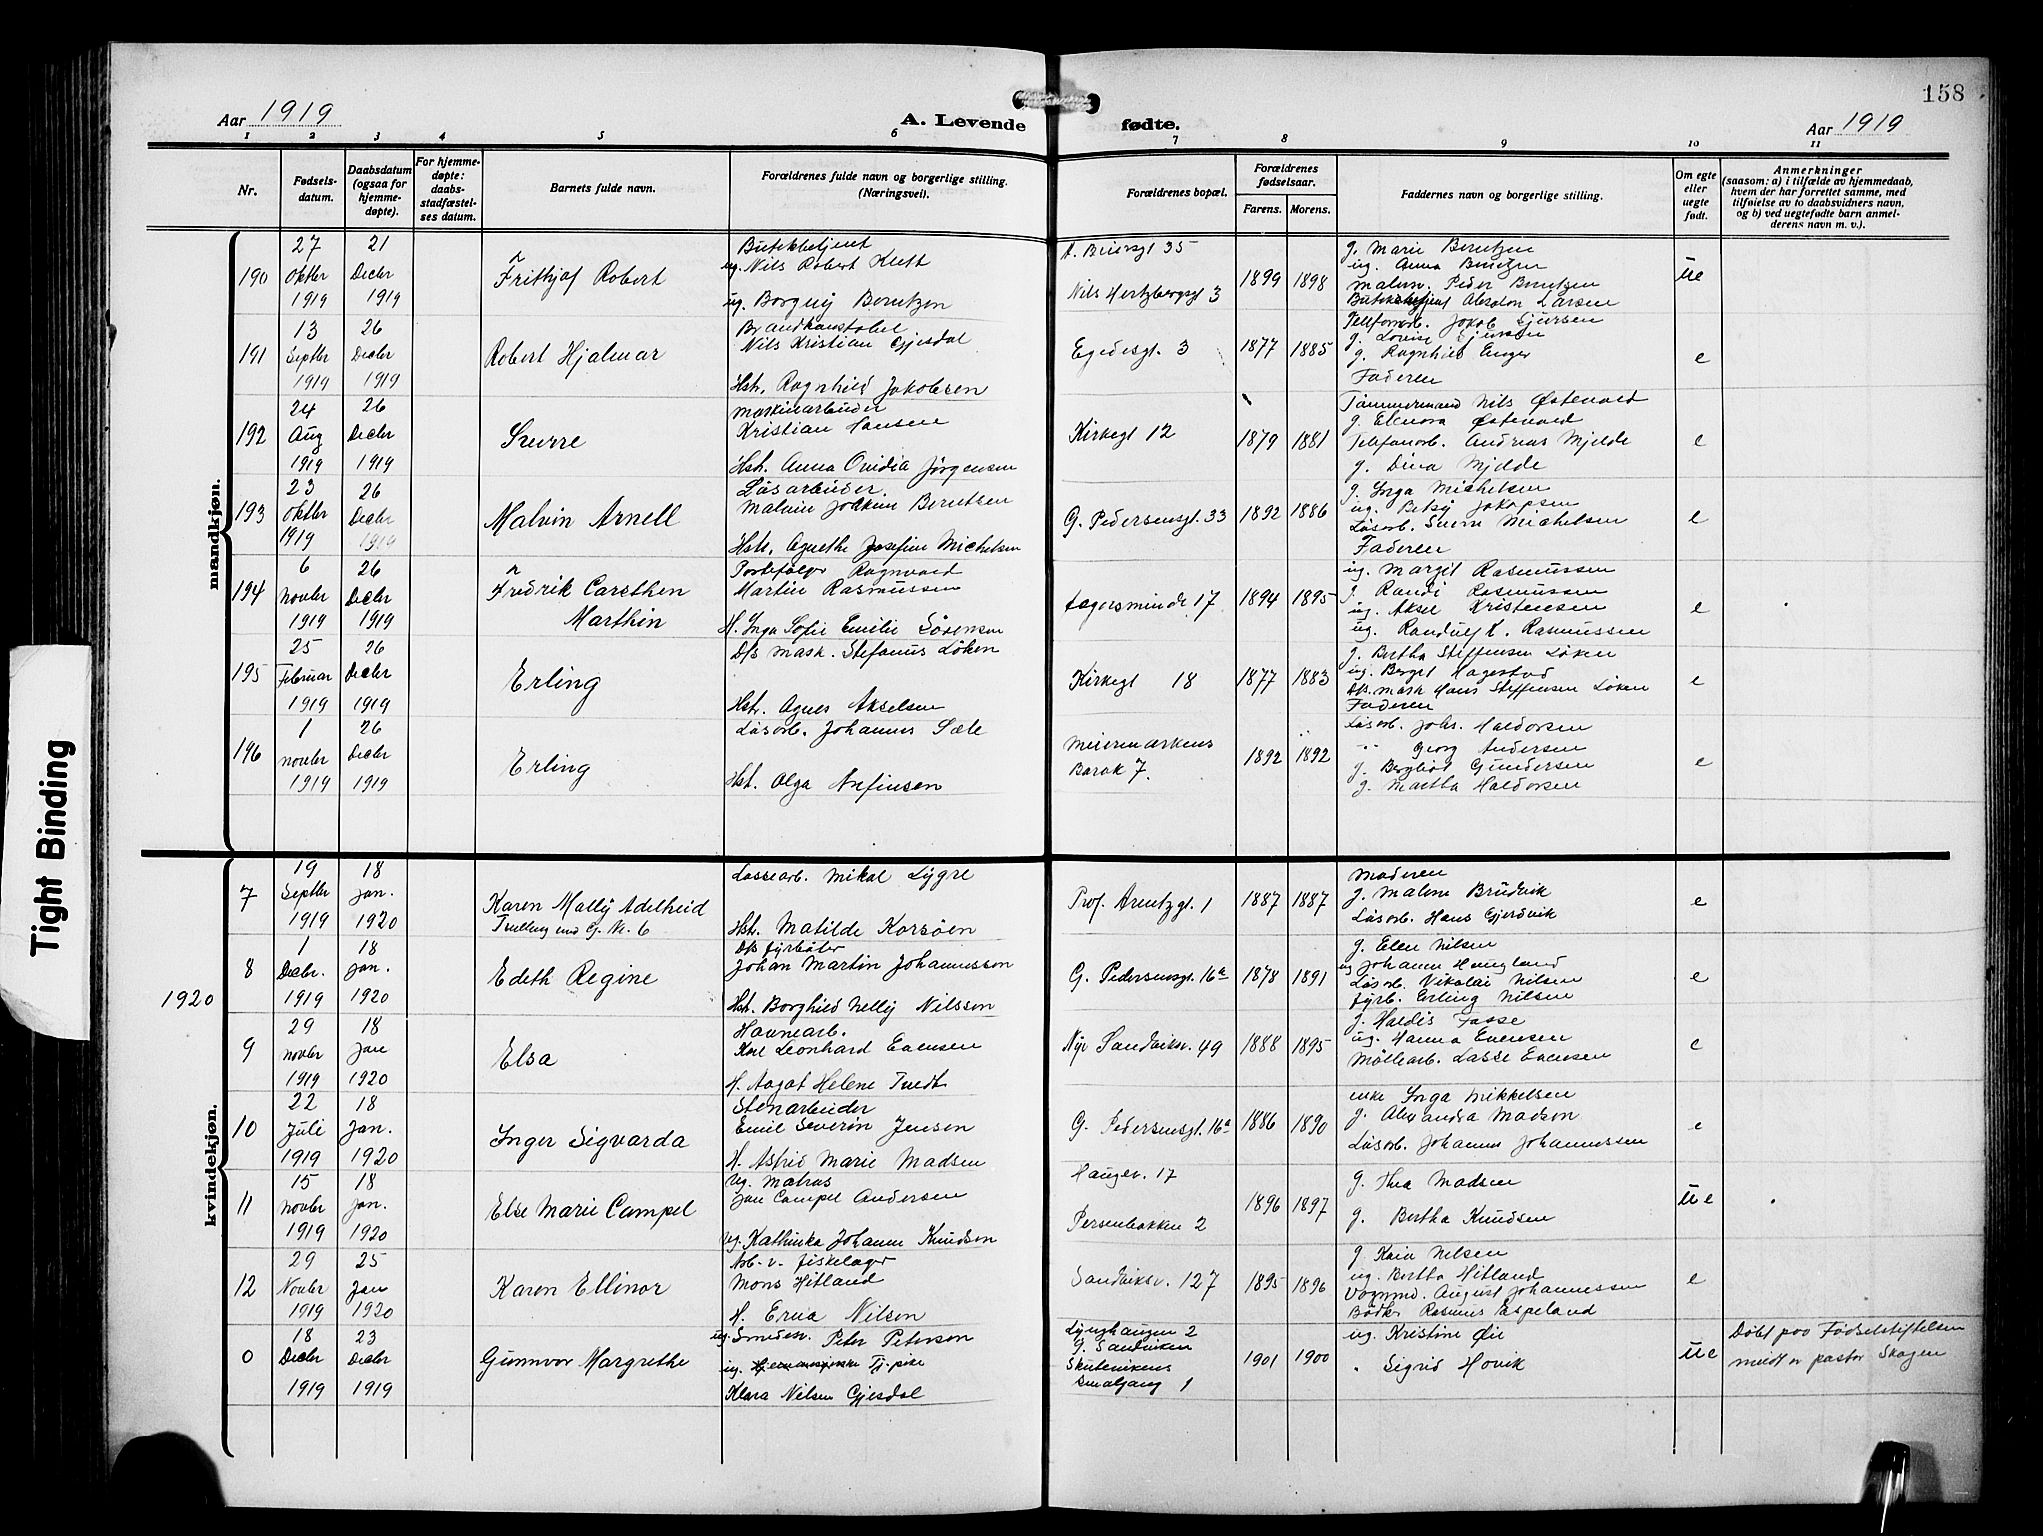 158
Aar 1919
A. Levende fødte.
Aar 1919
1 2 3 4 5 6 7 8 9 10 11
Nr.
Fødsels-
datum.
Daabsdatum
(ogsaa for
hjemme-
døpte).
For hjemme-
døpte:
daabs-
stadfæstel-
ses datum.
Barnets fulde navn.
Forældrenes fulde navn og borgerlige stilling.
(Næringsvei).
Forældrenes bopæl.
Forældrenes
fødselsaar.
Farens. Morens.
Faddernes navn og borgerlige stilling.
Om egte
eller
uegte
født.
Anmerkninger
(saasom: a) i tilfælde av hjemmedaab,
hvem der har forrettet samme, med
tilføielse av to daabsvidners navn,
og b) ved uegtefødte barn anmel-
derens navn m. v.).
mandkjøn.
190
27 Oktbr 1919
21 Decbr 1919
Frithjof Robert
Butikbetjent
ug. Nils Robert
ug. Borgny Berntzen
Nils Hertzbergsgt 3
1899 1898
g. Marie Berntzen
ug. Anna Berntzen
Peder Berntzen
Absolon Larsen
ue
191
13 Septbr 1919
26 Decbr 1919
Robert Hjalmar
Brandkonstabel
Nils Kristian Gjesdal
Hstr. Ragnhild Jakobsen
Egedesgt. 3
1877 1885
Jakob Sjursen
g. Lovise Sjursen
g. Ragnhild Unger
Faderen
e
192
24 Aug 1919
26 Decbr 1919
Snorre
Maskinarbeider
Kristian Hansen
Hst. Anna Ovidia Jørgensen
Kirkegt 12
1879 1881
Tømmermand Nils Østevold
g. Elenora Østevold
Telefonarb. Andreas Mjelde
g. Dina Mjelde
e
193
23 Oktbr 1919
26 Decbr 1919
Malvin Arnell
Løsarbeider.
Malvin Joakim Berntsen
Hstr. Agnethe Josefine Michelsen
G. Pedersensgt. 33
1892 1886
g. Inga Michelsen
ug. Betsy Jakopsen
Løsarb. Sverre Michelsen
Faderen
e
194
6 Novbr 1919
26 Decbr 1919
Fredrik Carsthen
Marthin
Ragnvald
Martin Rasmussen
H. Inga Sofie Emilie Sørensen
Fagersminde 17
1894 1895
ug. Margit Rasmussen
g. Randi Rasmussen
ug. Aksel Kristensen
ug. Randulf K. Rasmussen
e
195
25 Februar 1919
26 Decbr 1919
Erling
D/s mask. Stefanus Løken
Hstr. Agnes Akselsen
Kirkegt 18
1877 1883
g. Bertha Steffensen Løken
ug. Berget Hagestad
D/s. mask Hans Steffensen Løken
Faderen
e
196
1 Novbr 1919
26 Decbr 1919
Erling
Løsarb. Johannes Sæle
Hst. Olga Arfinsen
Meiermarkens
Barak 7.
1892 1892
Løsarb. Johs. Haldorsen
" Georg Andersen
g. Bergliot Gundersen
g. Martha Haldorsen
e
kvindekjøn.
1920
7
19 Septbr 1919
18 Jan. 1920
Karen Mally Adelheid
Tvilling med G. Nr. 6
Lossearb. Mikal Lygre
Hst. Matilde Korsøen
Prof. Arentzgt. 1
1887 1887
Moderen
g. Malene Brudvik
Løsarb. Hans Gjerdvik
e
8
1 Decbr. 1919
18 Jan. 1920
Edeth Regine
D/s fyrbøter
Johan Martin Johannesson
Hst. Borghild Nelly Nilssen
G. Pedersensgt. 16a
1878 1891
g. Ellen Nilsen
ug Johanne Haugland
Løsarb. Nikolai Nilsen
fyrb. Erling Nilsen
e
9
29 Novbr 1919
18 Jan 1920
Elsa
Havnearb.
Karl Leonhard Evensen
H. Aagot Helene Tvedt
Nye Sandviksv. 49
1888 1895
g. Haldis Fasse
ug. Hanna Evensen
Møllearb. Lasse Evensen
e
10
22 Juli 1919
18 Jan. 1920
Inger Sigvarda
Stenarbeider
Emil Severin Jensen
H. Astrid Marie Madsen
G. Pedersensgt. 16a
1886 1890
enke Inga Mikkelsen
g. Alexandra Madsen
Løsarb. Johannes Johannessen
e
11
15 Novbr 1919
18 Jan. 1920
Else Marie Campel
ug. Matros
Jan Campel Andersen
ug. Kathinka Johanne Knudsen
Haugev. 17
Persenbakken 2
1896 1897
g. Thea Madsen
g. Bertha Knudsen
ue
12
29 Novbr 1919
25 Jan 1920
Karen Ellinor
Arb. v. fiskelager
Mons Hitland
H. Erna Nilsen
Sandviksv. 127
1895 1896
g. Kaia Nilsen
ug. Bertha Hitland
Vognmd. August Johannessen
Bødker Rasmus Espeland
e
0
18 Decbr 1919
23 Decbr 1919
Gunnvor Margrethe
ug. Smedsv. Peter Peterson
ug. Tj. pike
Klara Nilsen Gjesdal
Lynghaugen 2
G. Sandviken
Skutevikens
Smalgang 1
1901 1900
ug. Kristine Øie
" Sigrid Hovik
ue
Døbt paa Fødselstiftelsen
meldt av pastor Skagen
Tight Binding